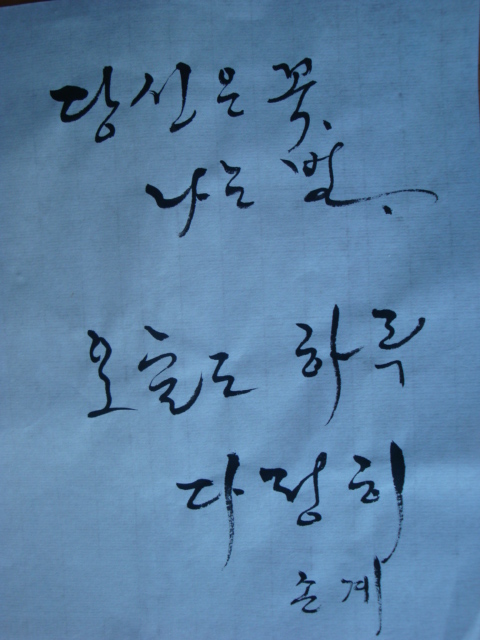 당신은 꽃,
나는 벌.
오늘도 하루
다정히